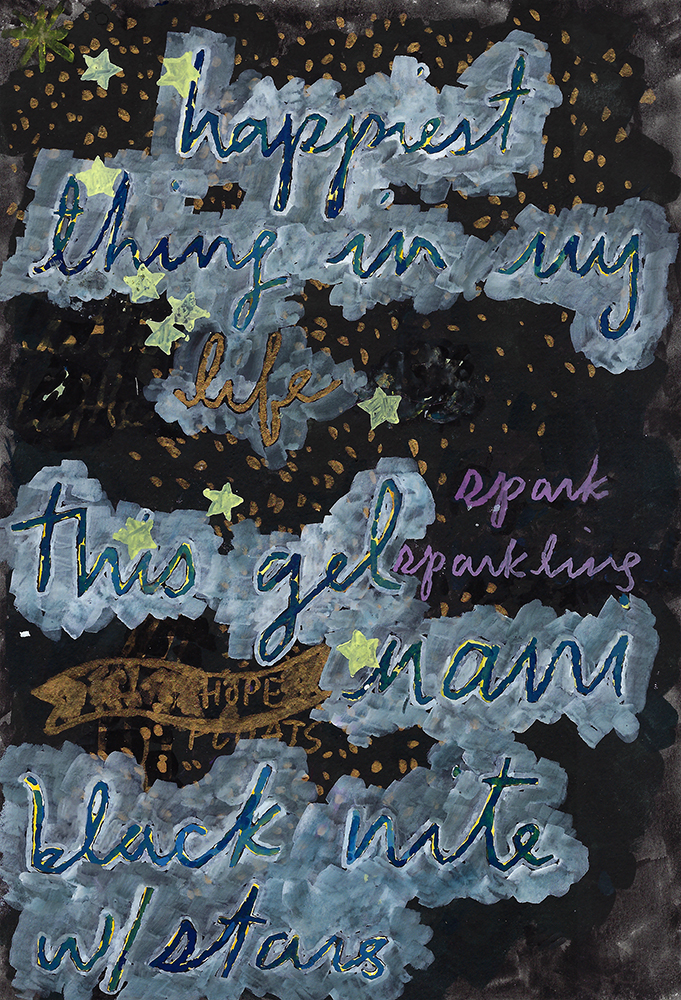 happiest
thing in my
life
spark
this gel sparkling
HOPE nani
FLOATS
black nite
w/stars